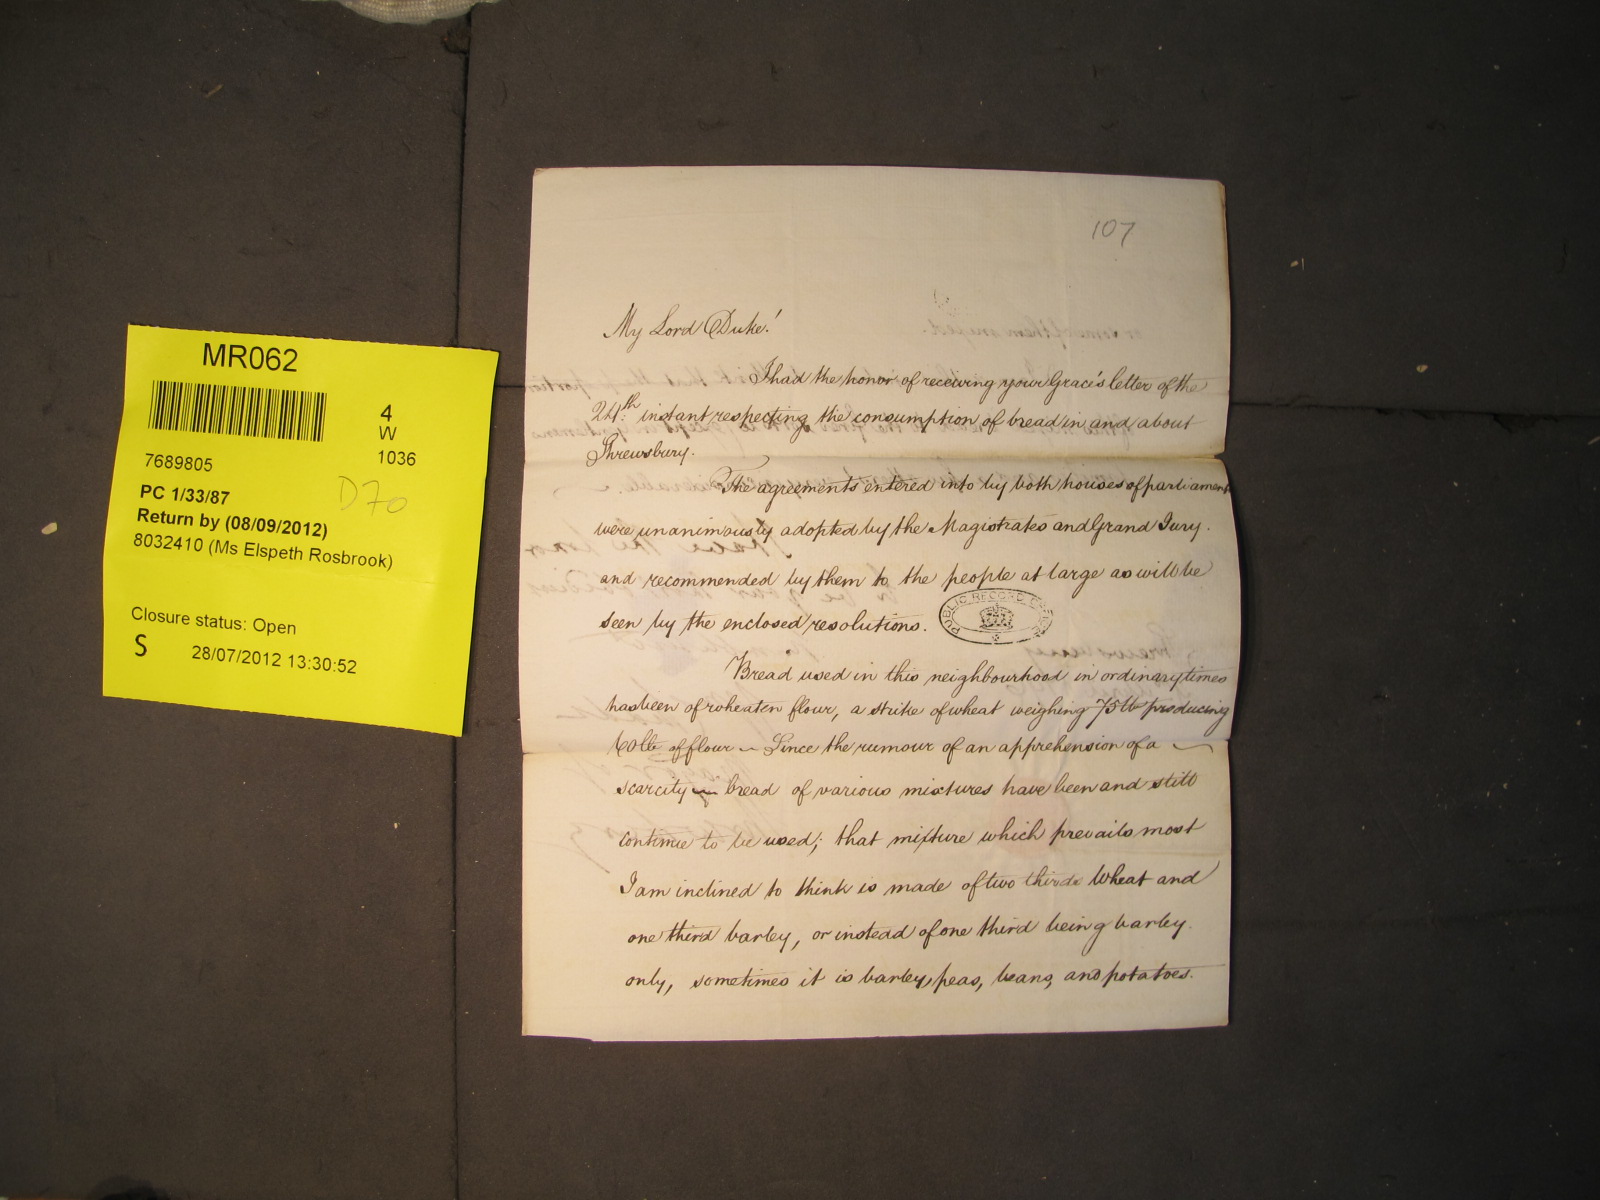 MR062
4
W
1036
7689805
PC 1/33/87
D70
Return by (08/09/2012)
8032410 (Ms Elspeth Rosbrook)
Closure status: Open
S 28/07/2012 13:30:52
107
My Lord Duke!
I had the honor of receiving your Grace's letter of the
24th: instant respecting the consumption of bread in and about
Shrewsbury.
The agreements entered into by both houses of parliament
were unanimously adopted by the Magistrates and Grand Jury.
and recommended by them to the people at large as will be
seen by the enclosed resolutions.
PUBLIC RECORD OFFICE
Bread used in this neighbourhood in ordinary times
has been of wheaten flour, a strike of wheat weighing 75lb producing
60lb of flour ~ Since the rumour of an apprehension of a ~
scarcity ~ bread of various mixtures have been and still
continue to be used; that mixture which prevails most
I am inclined to think is made of two thirds wheat and
one third barley, or instead of one third being barley.
only, sometimes it is barley, peas, beans, and potatoes.